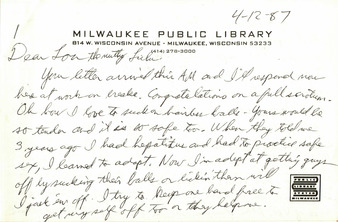 4-12-87
1
MILWAUKEE PUBLIC LIBRARY
814 W. WISCONSIN AVENUE - MILWAUKEE, WISCONSIN 53233
(414) 278-3000
Dear Lou
Your letter arrived this AM and I'll respond now
here at work on breaks. Congratulations on a full scrotum.
Oh how I love to suck on hairless balls - Yours would be
so tender and it is so safe too. When they told me
3 years ago I had hepatitus and had to practice safe
sex, I learned to adapt. Now I'm adept at getting guys
off by sucking their balls or lickin them while
I jack 'em off. I try to keep one hand free to
get myself off too or they help me.
MILWAUKEE